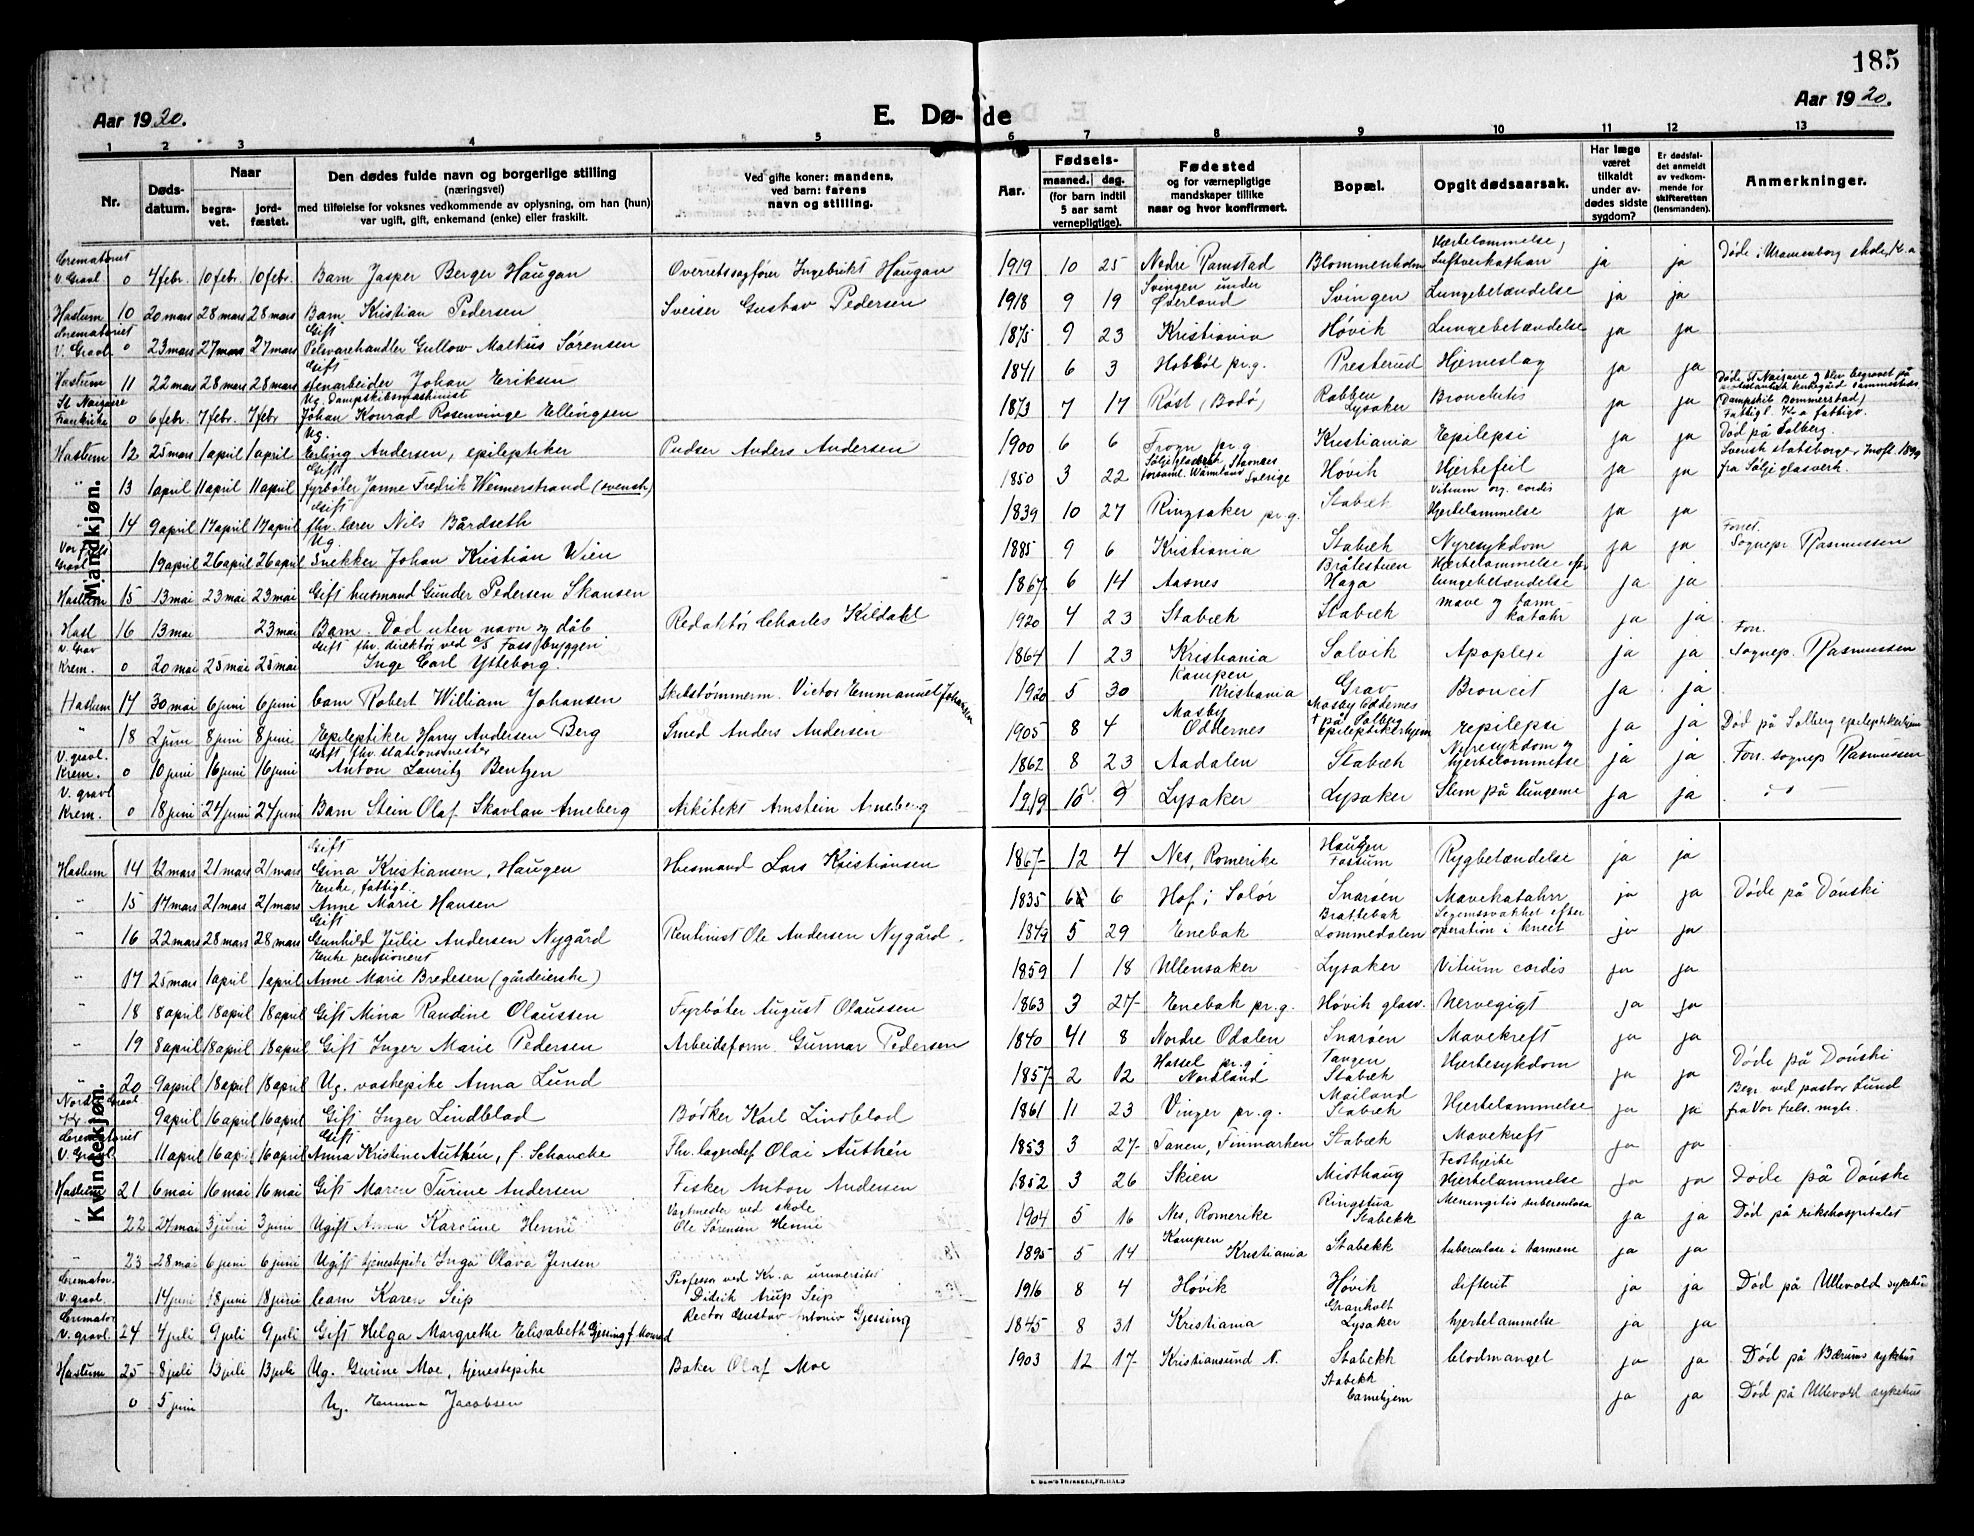 185
Aar 1920.
E. Dø-de
Aar 1920.
1 2 3 4 5 6 7 8 9 10 11 12 13
Nr.
Døds-datum.
Naar
begra-vet.
jord-fæstet.
Den dødes fulde navn og borgerlige stilling
(næringsvei)
med tilføielse for voksnes vedkommende av oplysning, om han (hun)
var ugift, gift, enkemand (enke) eller fraskilt.
Ved gifte koner: mandens,
ved barn: farens
navn og stilling.
Aar.
Fødsels-
maaned. dag.
(for barn indtil
5 aar samt
vernepligtige).
Fødested
og for værnepligtige
mandskaper tillike
naar og hvor konfirmert.
Bopæl.
Opgit dødsaarsak.
Har læge
været
tilkaldt
under av-
dødes sidste
sygdom?
Er dødsfal-
det anmeldt
av vedkom-
mende for
skifteretten
(lensmanden).
Anmerkninger.
Mandkjøn.
Crematoriet V. Gravl. 0 4 febr. 10 febr. 10 febr. Barn Jasper Berger Haugan Overretssagfører Ingebrikt Haugan 1919 10 25 Nedre Ramstad Blommenholm Hjertelammelse, Luftveikatharr ja ja Døde i Uranienborg skole, K.a
Haslum 10 20 mars 28 mars 28 mars Barn Kristian Pedersen Sveiser Gustav Pedersen 1918 9 19 Svingen under Øverland Svingen Lungebetændelse ja ja
Crematoriet V. Gravl. 0 23 mars 27 mars 27 mars Gift Pelsvarehandler Gullow Malthus Sørensen 1875 9 23 Kristiania Høvik Lungebetændelse ja ja
Haslum 11 22 mars 28 mars 28 mars Gift stenarbeider Johan Eriksen 1841 6 3 Hobbøl pr.g. Presterud Hjerneslag ja ja
St Nazaire Frankrike 0 6 febr. 7 febr. 7 febr Ug. Dampskibsmaskinist Johan Konrad Rosenvinge Ellingsen 1873 7 17 Røst (Bodø) Robben Lysaker Bronchitis ja ja Døde St Nazaire og blev begravet på protestantisk kirkegård sammesteds (Dampskib Bommerstad)
Haslum 12 25 mars 1 april 1 april Ug. Erling Andersen, epileptiker Pudser Anders Andersen 1900 6 6 Frogn pr.g. Kristiania Epilepsi ja ja Fattigl. K.a fattigv. Død på Solberg.
" 13 1 april 11 april 11 april Gift fyrbøter Janne Fredrik Wennerstrand (svensk) 1850 3 22 Sverige Høvik Hjertefeil ja ja Svensk statsborger, Indfl. 1899 fra Sølje glasverk.
" 14 9 april 17 april 17 april Gift fhv. lærer Nils Bårdseth 1839 10 27 Ringsaker pr.g. Stabæk Vitium org. cordis Hjertelammelse ja ja
Vor Frels Gravl. 19 april 26 april 26 april Ug. Snekker Johan Kristian Wien 1885 9 6 Kristiania Stabæk Nyresykdom ja ja Forret. Sognepr Rasmussen
Haslum 15 13 mai 23 mai 23 mai Gift husmand Gunder Pedersen Skansen 1867 6 14 Aasnes Bråtestuen Haga Hjertelammelse efter lungebetændelse ja ja
Hasl 16 13 mai 23 mai Barn. Død uten navn og dåb Redaktør Charles Kildahl 1920 4 23 Stabæk Stabæk mave og tarm katahr ja ja
V. Grav Krem. 0 20 mai 25 mai 25 mai Gift fhv. direktør ved A/S Foss bryggeri Inge Carl Ytteborg. 1864 1 23 Kristiania Solvik Apoplexi ja ja Forr. Sognep. Rasmussen
Haslum 17 30 mai 6 juni 6 juni barn Robert William Johansen Skibstømmerm. Victor Emmanuel Johansen 1920 5 30 Kampen Kristiania Grav Broncit ja ja
" 18 2 juni 8 juni 8 juni Epileptiker Harry Andersen Berg Smed Anders Andersen 1905 8 4 Mosby Oddernes Mosby Oddernes † på Solberg Epileptikerhjem epilepsi ja ja Død på Solberg epileptikerhjem
V. gravl. Krem. 0 10 juni 16 juni 16 juni Gift fhv. stationsmester Anton Lauritz Bentzen 1862 8 23 Aadalen Stabæk Nyresykdom og hjertelammelse ja ja Forr. sognep Rasmussen
V. gravl Krem. 0 18 juni 24 juni 24 juni Barn Stein Olaf Skavlan Arneberg Arkitekt Arnstein Arneberg 1919 10 9 Lysaker Lysaker Slim på lungerne ja ja
Kvindekjøn.
Haslum 14 12 mars 21 mars 21 mars Gift Gina Kristiansen, Haugen Husmand Lars Kristiansen 1867 12 4 Nes, Romerike Haugen Fossum Rygbetændelse ja ja
" 15 17 mars 21 mars 21 mars Enke, fattigl. Anne Marie Hansen 1835 6 6 Hof i Solør Snarøen Mavekatahrr ja ja Døde på Dønski
" 16 22 mars 28 mars 28 mars Gift Gunhild Julie Andersen Nygård Rentenist Ole Andersen Nygård. 1849 5 29 Enebak Brattebak Lommedalen operation i kneet ja ja
" 17 25 mars 1 april 1 april Enke pensioneret Anne Marie Bredesen (gårdeierske) 1859 1 18 Ullensaker Lysaker Vitium cordis ja ja
" 18 8 april 18 april 18 april Gift Mina Randine Olaussen Fyrbøter August Olaussen 1863 3 27 Enebak pr.g. Høvik glasv. Nervegigt ja ja
" 19 8 april 18 april 18 april Gift Inger Marie Pedersen Arbeidsform. Gunnar Pedersen 1840 8 Nordre Odalen Snarøen Mavekreft ja ja
" 20 9 april 18 april 18 april Ug. vaskepike Anna Lund 1857 2 12 Hassel pr.g. i Nordland Tangen Stabæk Hjertesykdom ja ja Døde på Dønski
Nordr. Gravl 9 april 16 april 16 april Gift Inger Lindblad Børker Karl Lindblad 1861 11 23 Vinger pr.g. Mailand Stabæk Hjertelammelse ja ja Begr. ved pastor Lund fra Vor frels. mgh.
Crematoriet V. Gravl 11 april 16 april 16 april Gift Anna Kristine Authén, f. Schancke Fhv. lagerchef Olai Authén 1853 3 27 Tanen, Finmarken Stabæk Mavekreft ja ja
Haslum 21 6 mai 16 mai 16 mai Gift Maren Turine Andersen Fisker Anton Andersen 1852 3 26 Skien Misthaug Fetthjerte Hjertelammelse ja ja Døde på Dønske
" 22 27 mai 3 juni 3 juni Ugift Anna Karoline Henni Vagtmester ved skole Ole Sørensen Henni 1904 5 16 Nes, Romerike Ringstua Stabekk Meningitis tuberculosa ja ja Død på rikshospitalet
" 23 28 mai 6 juni 6 juni Ugift tjenestepike Inga Olava Jensen 1895 5 14 Kampen Kristiania Stabekk tuberculose i tarmene ja ja
Cremator. V. gravl 14 juni 18 juni 18 juni barn Karen Seip Professor ved Kr.a universitet Didrik Arup Seip 1916 8 4 Høvik Høvik difterit ja ja Død på Ullevold sykehus
Cremator V. gravl. 24 4 juli 9 juli 9 juli Gift Helga Margrethe Elisabeth Gjessing f. Monrad Rector Gustav Antonio Gjessing 1845 8 31 Kristiania Granholt Lysaker hjertelammelse ja ja
Haslum 25 8 juli 13 juli 13 juli Ug. Gurine Moe, tjenestepike Baker Olaf Moe 1903 12 17 Kristiansund N. Stabekk blodmangel ja ja Død på Bærums sykehus
0 5 juni Ug. Emma Jacobsen Stabekk barnehjem ja ja Død på Ullevold sykehus